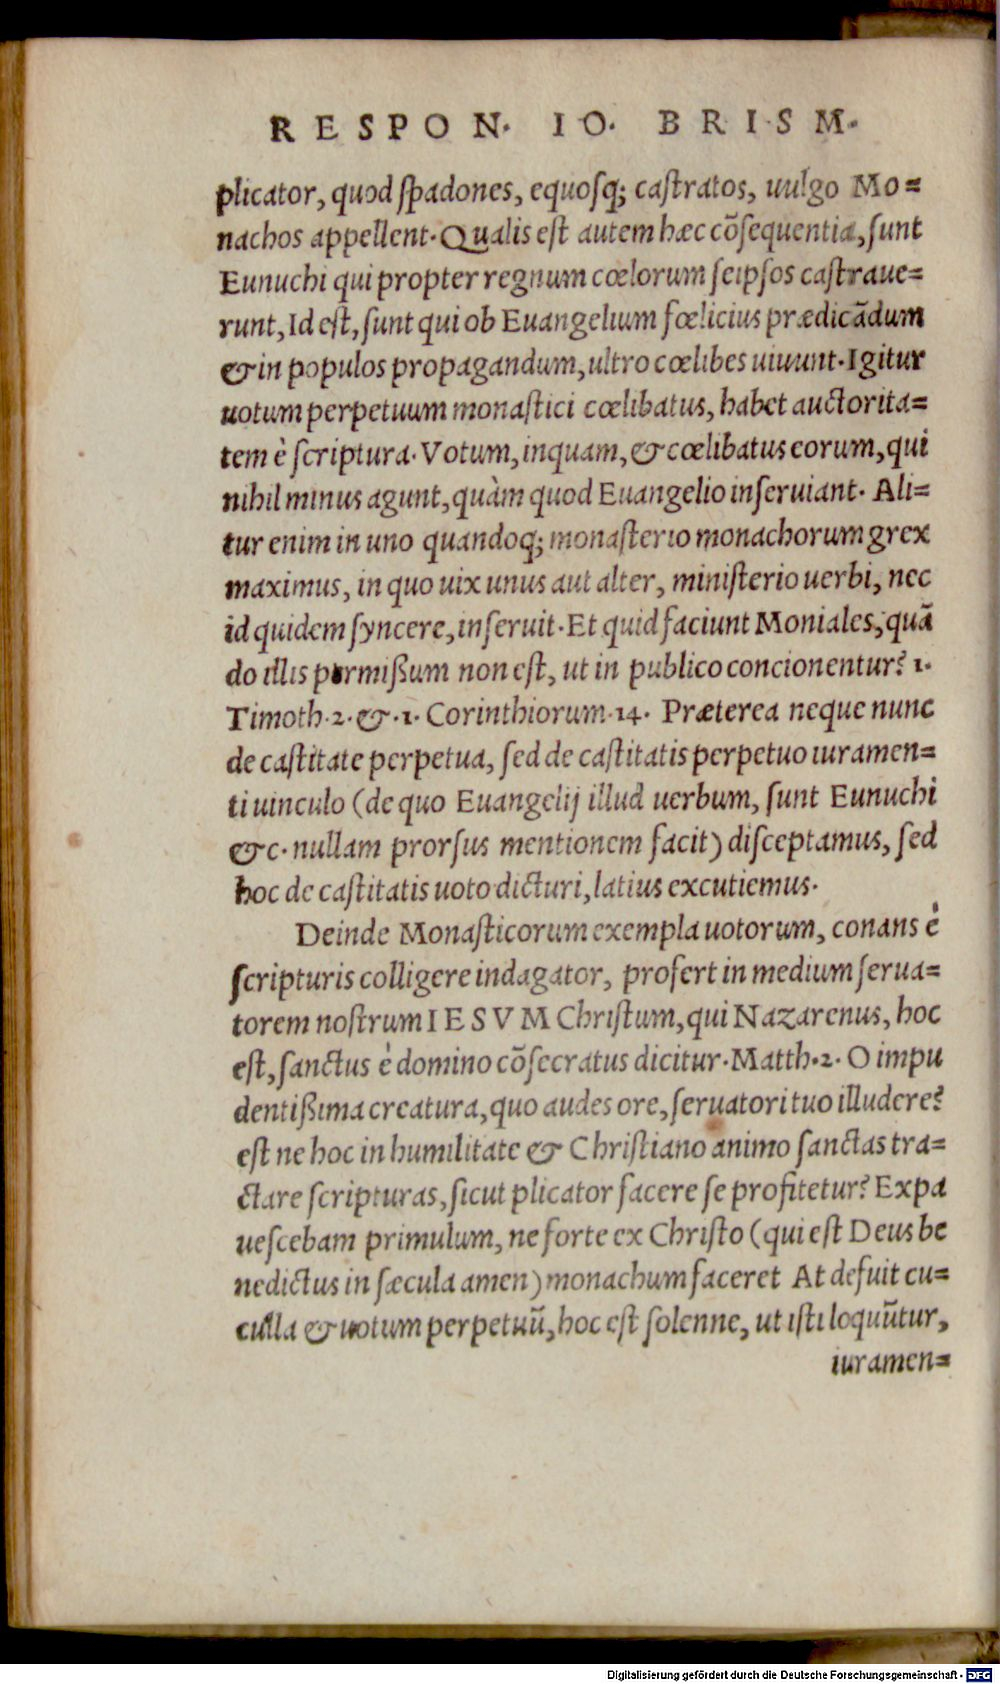 RESPON. IO. BRISM.
plicator, quod spadones, equosq; castratos, uulgo Mo=
nachos appellent. Qualis est autem hæc cõsequentia, sunt
Eunuchi qui propter regnum cœlorum seipsos castraue=
runt, Id est, sunt qui ob Euangelium fœlicius prædicãdum
& in populos propagandum, ultro cœlibes uiuunt. Igitur
uotum perpetuum monastici cœlibatus, habet auctorita=
tem è scriptura. Votum, inquam, & cœlibatus eorum, qui
nihil minus agunt, quàm quod Euangelio inseruiant. Ali=
tur enim in uno quandoq; monasterio monachorum grex
maximus, in quo uix unus aut alter, ministerio uerbi, nec
id quidem syncere, inseruit. Et quid faciunt Moniales, quã
do illis permißum non est, ut in publico concionentur? 1.
Timoth. 2. & .1. Corinthiorum. 14. Præterea neque nunc
de castitate perpetua, sed de castitatis perpetuo iuramen=
ti uinculo (de quo Euangelij illud uerbum, sunt Eunuchi
&c. nullam prorsus mentionem facit) disceptamus, sed
hoc de castitatis uoto dicturi, latius excutiemus.
Deinde Monasticorum exempla uotorum, conans è
scripturis colligere indagator, profert in medium serua=
torem nostrum IESVM Christum, qui Nazarenus, hoc
est, sanctus è domino cõsecratus dicitur. Matth. 2. O impu
dentißima creatura, quo audes ore, seruatori tuo illudere?
est ne hoc in humilitate & Christiano animo sanctas tra=
ctare scripturas, sicut plicator facere se profitetur? Expa
uescebam primulum, ne forte ex Christo (qui est Deus be
nedictus in sæcula amen) monachum faceret At defuit cu=
culla & uotum perpetuũ, hoc est solenne, ut isti loquũtur,
iuramen=
Digitalisierung gefördert durch die Deutsche Forschungsgemeinschaft - DFG